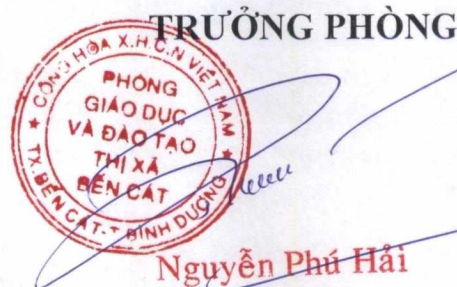 TRƯỞNG PHÒNG
CỘNG HÒA X.H.C.N VIỆT NAM
PHÒNG
GIÁO DỤC
VÀ ĐÀO TẠO
THỊ XÃ
BẾN CÁT
★ TX.BẾN CÁT-T.BÌNH DƯƠNG ★
Nguyễn Phú Hải